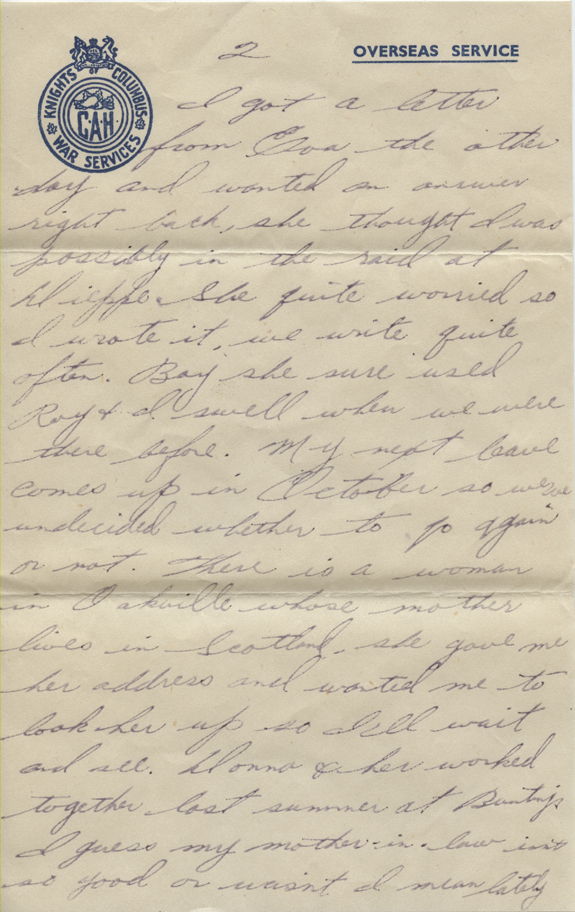 2
OVERSEAS SERVICE
KNIGHTS OF COLUMBUS
CAH
WAR SERVICES
I got a letter
from Eva the other
day and wanted an answer
right back, she thought I was
possibly in the raid at
Dieppe. She quite worried so
I wrote it, we write quite
often. Boy she sure used
Roy & I swell when we were
there before. My next leave
comes up in October so we're
undecided whether to go again
or not. There is a woman
in Oakville whose mother
lives in Scotland. she gave me
her address and wanted me to
look her up so I'll wait
and see. Donna & her worked
together last summer at Buntings
I guess my mother-in-law isn't
so good or wasn't I mean lately